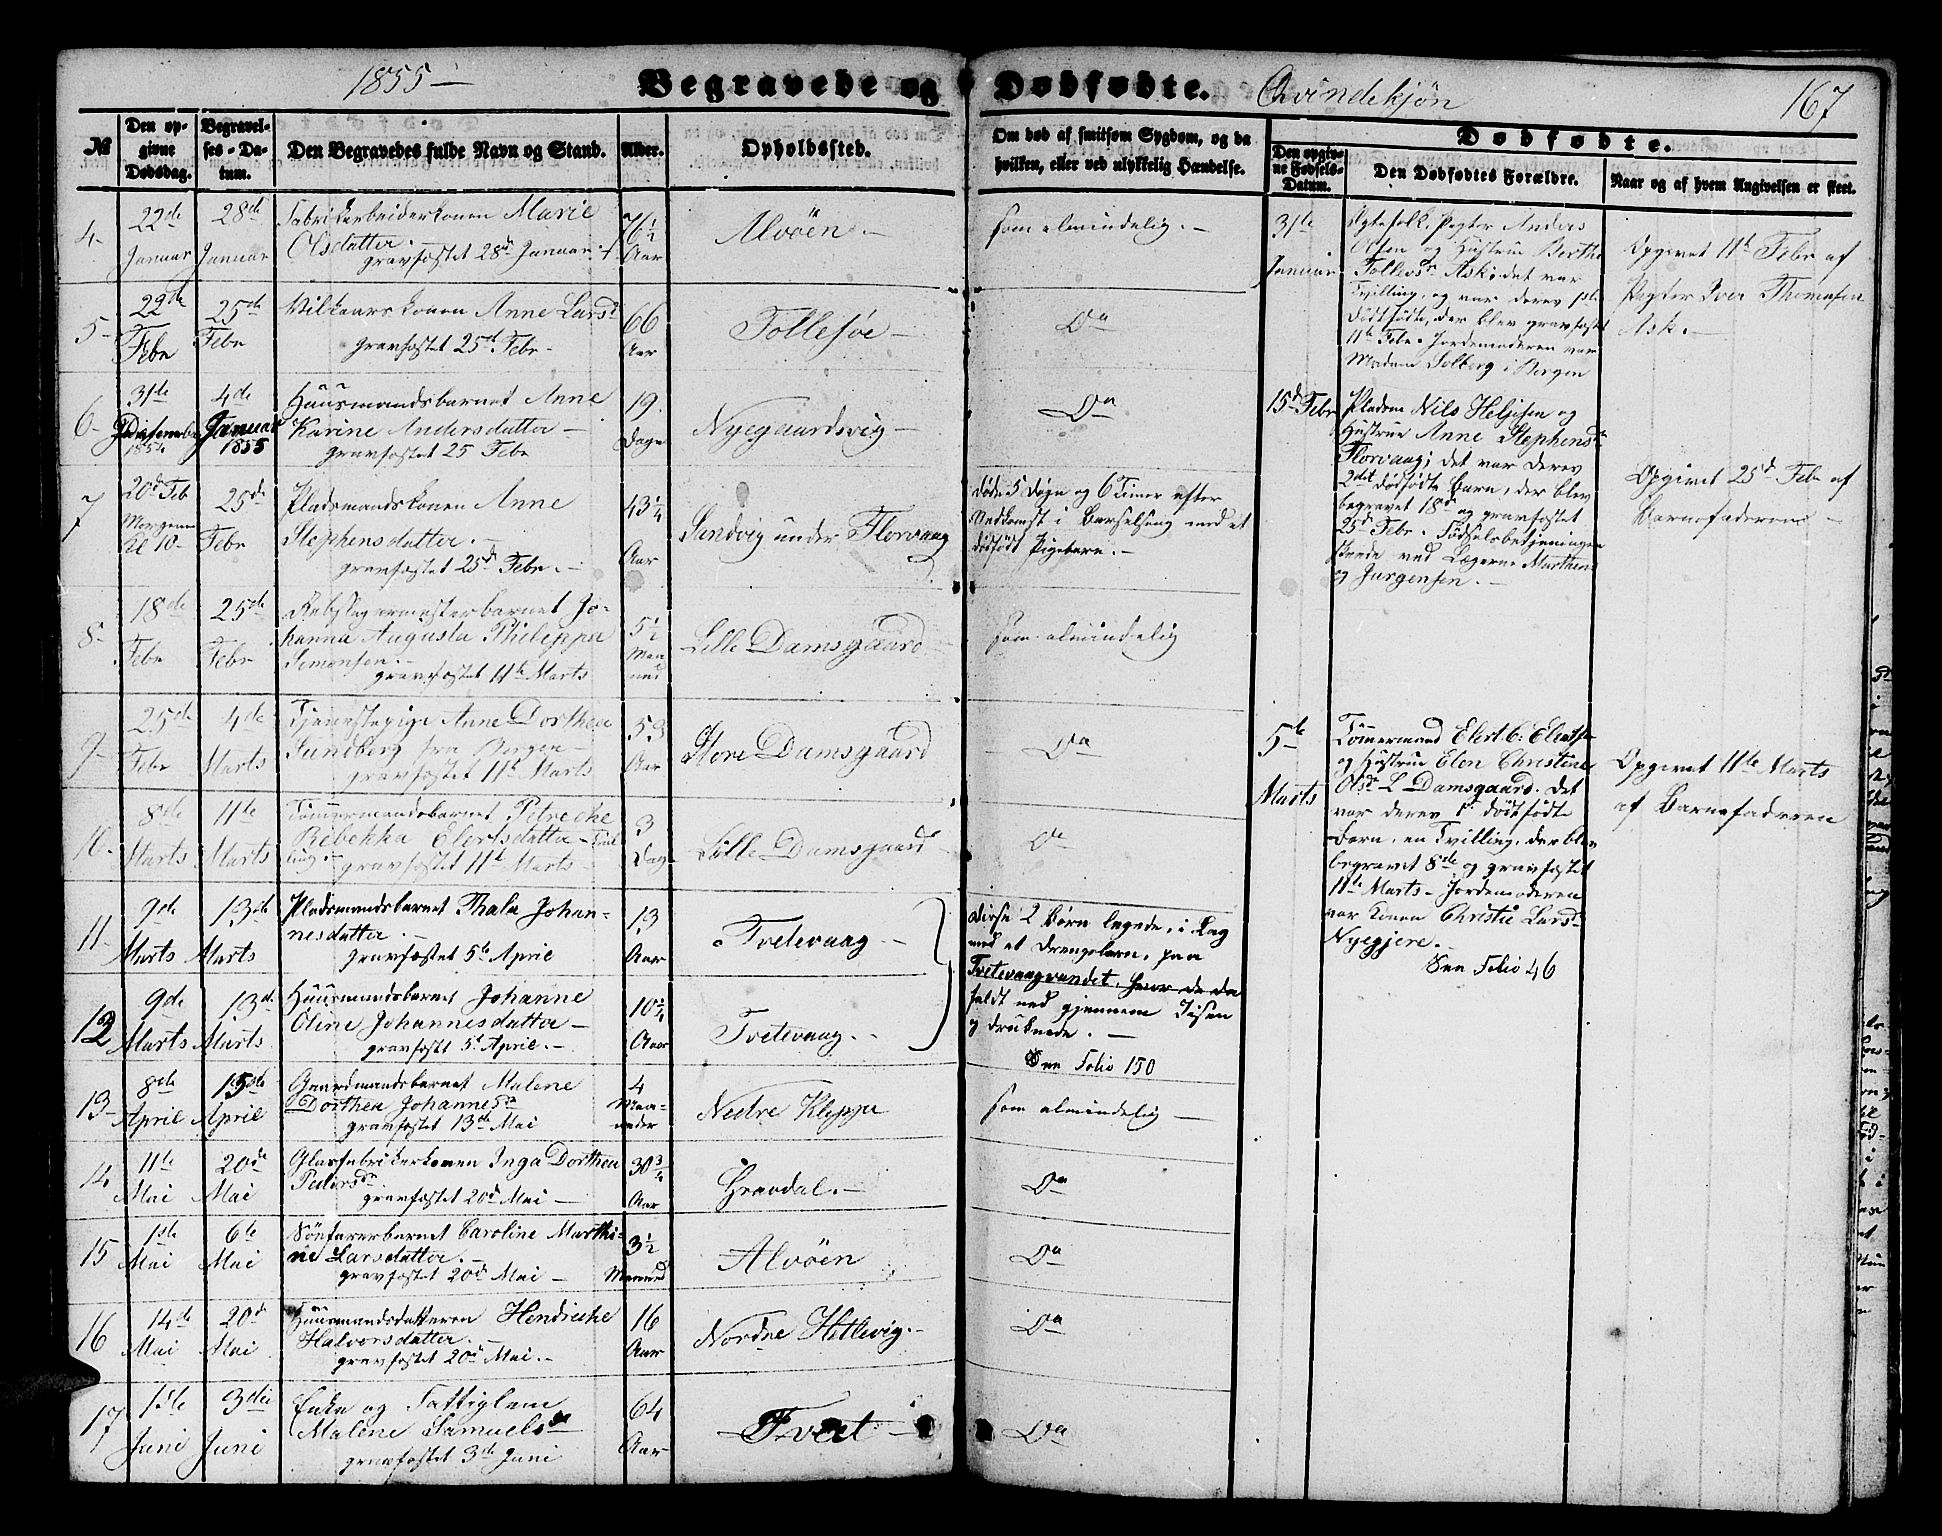 1855 –
Begravede og Dødfødte. Qvindekjøn
167
№
Den op-
givne
Dødsdag.
Begravel-
ses-Da-
tum.
Den Begravedes fulde Navn og Stand.
Alder.
Opholdssted.
Om død af smitsom Sygdom, og da
hvilken, eller ved ulykkelig Hændelse.
Dødfødte.
Den opgiv-
ne Fødsels-
Datum.
Den Dødfødtes Forældre.
Naar og af hvem Angivelsen er skeet.
4
22de
Januar
28de
Januar
Fabrikarbeiderkonen Marie
Olsdatter.
gravfæstet 28de Januar
76½
Aar
Alvöen –
som almindelig. –
5
22de
Febr
25de
Febr
Vilkaarskonen Anne Larsd
gravfæstet 25de Febr –
66
Aar
Tollesøe –
Do
6
31te
1854
4de
Januar
1855
Huusmandsbarnet Anne
Karine Andersdatter –
gravfæstet 25 Febr
19
Dage
Nyegaardsvig –
Do
7
20d Feb
Morgenen
Kl 10 –
25de
Febr
Pladsmandskonen Anne
Stephensdatter. –
gravfæstet 25d Febr. –
43¼
Aar
Sundvig under Florvaag
Døde 5 Døgn og 6 Timer efter
Nedkomst i Barselseng med et
dödfödt Pigebarn. –
8
18de
Febr
25de
Febr
Rebslagermesterbarnet Jo-
hanna Augusta Philippa
Simonsen. –
gravfæstet 11te Marts
5½
Maa
ned
Lille Damsgaard –
som almindelig
9
25de
Febr
4de
Marts
Tjenestepige Anne Dorthea
Sundberg fra Bergen –
gravfæstet 11te Marts
53
Aar
Store Damsgaard
Do
10
8de
Marts
11te
Marts
Tömmermandsbarnet Petreche
Rebekka Elertsdatter – Tvil
ling. –
gravfæstet 11te Marts –
3
Dage
Lille Damsgaard –
Do
11
9de
Marts
13de
Marts
Pladsmandsbarnet Thale Johan-
nesdatter. –
gravfæstet 5te April
13
Aar
Tvetevaag –
Disse 2 Börn legede, i Lag
med et Drengebarn, paa
Tvetevaagvandet, hvor de da
faldt ned gjennem Iisen
og druknede. –
See Folio 150
12
9de
Marts
13de
Marts
Huusmandsbarnet Johanne
Oline Johannesdatter –
gravfæst 5te April. –
10¼
Aar
Tvetevaag. –
13
8de
April
15de
April
Gaardmandsbarnet Malene
Dorthea Johannesd
gravfæstet 13de Mai
4
Maa-
neder
Nedre Kleppe
som almindelig –
14
11te
Mai
20de
Mai
Glasfabrikerkonen Inga Dorthea
Pedersd
gravfæstet 20d Mai –
30¾
Aar
Gravdal. –
Do
15
1ste
Mai
6te
Mai
Sönfarerbarnet Caroline Marthi-
ne Larsdatter. –
gravfæstet 20d Mai –
3½
Maaned
Alvöen
Do
16
14de
Mai
20d
Mai
Huusmandsdatteren Hendricche
Halvorsdatter. –
gravfæstet 20d Mai. –
16
Aar
Nordre Hetlevig. –
Do
17
1ste
Juni
3die
Juni
Enke og Fattiglem
Malene Samuelsd
gravfæstet 3de Juni
64
Aar
Tvet –
Do
31te
Januar
Ægtefolk, Pagter Anders
Olsen og Hustrue Berthe
Tollevsd Ask; det var
Tvilling, og var deres 1ste
Dödfödte, der blev gravfæstet
11te Febr. Jordemoderen var
Madam Solberg i Bergen
Opgivet 11te Febr af
Pagter Iver Thomsen
Ask. –
15d Febr
Pladsm Nils Helgesen og
Hustrue Anne Stephensd
Florvaag; det var deres
2det dödfödte Barn, der blev
begravet 18d og gravfæstet
25d Febr. Födselsbetjeningen
skeede ved Lægerne Marthens
og Jurgensen. –
Opgivet 25d Febr af
Barnefaderen –
5te
Marts
Tömmermand Elert C. Elertsen
og Hustrue Elen Christine
Olsd L Damsgaard. Det
var deres 1ste dödfödte
Barn, en Tvilling, der blev
begravet 8de og gravfæstet
11te Marts – Jordemoderen
var Konen Christie Larsd
Nyegjere. –
See Folio 46
Opgivet 11te Marts
af Barnefaderen